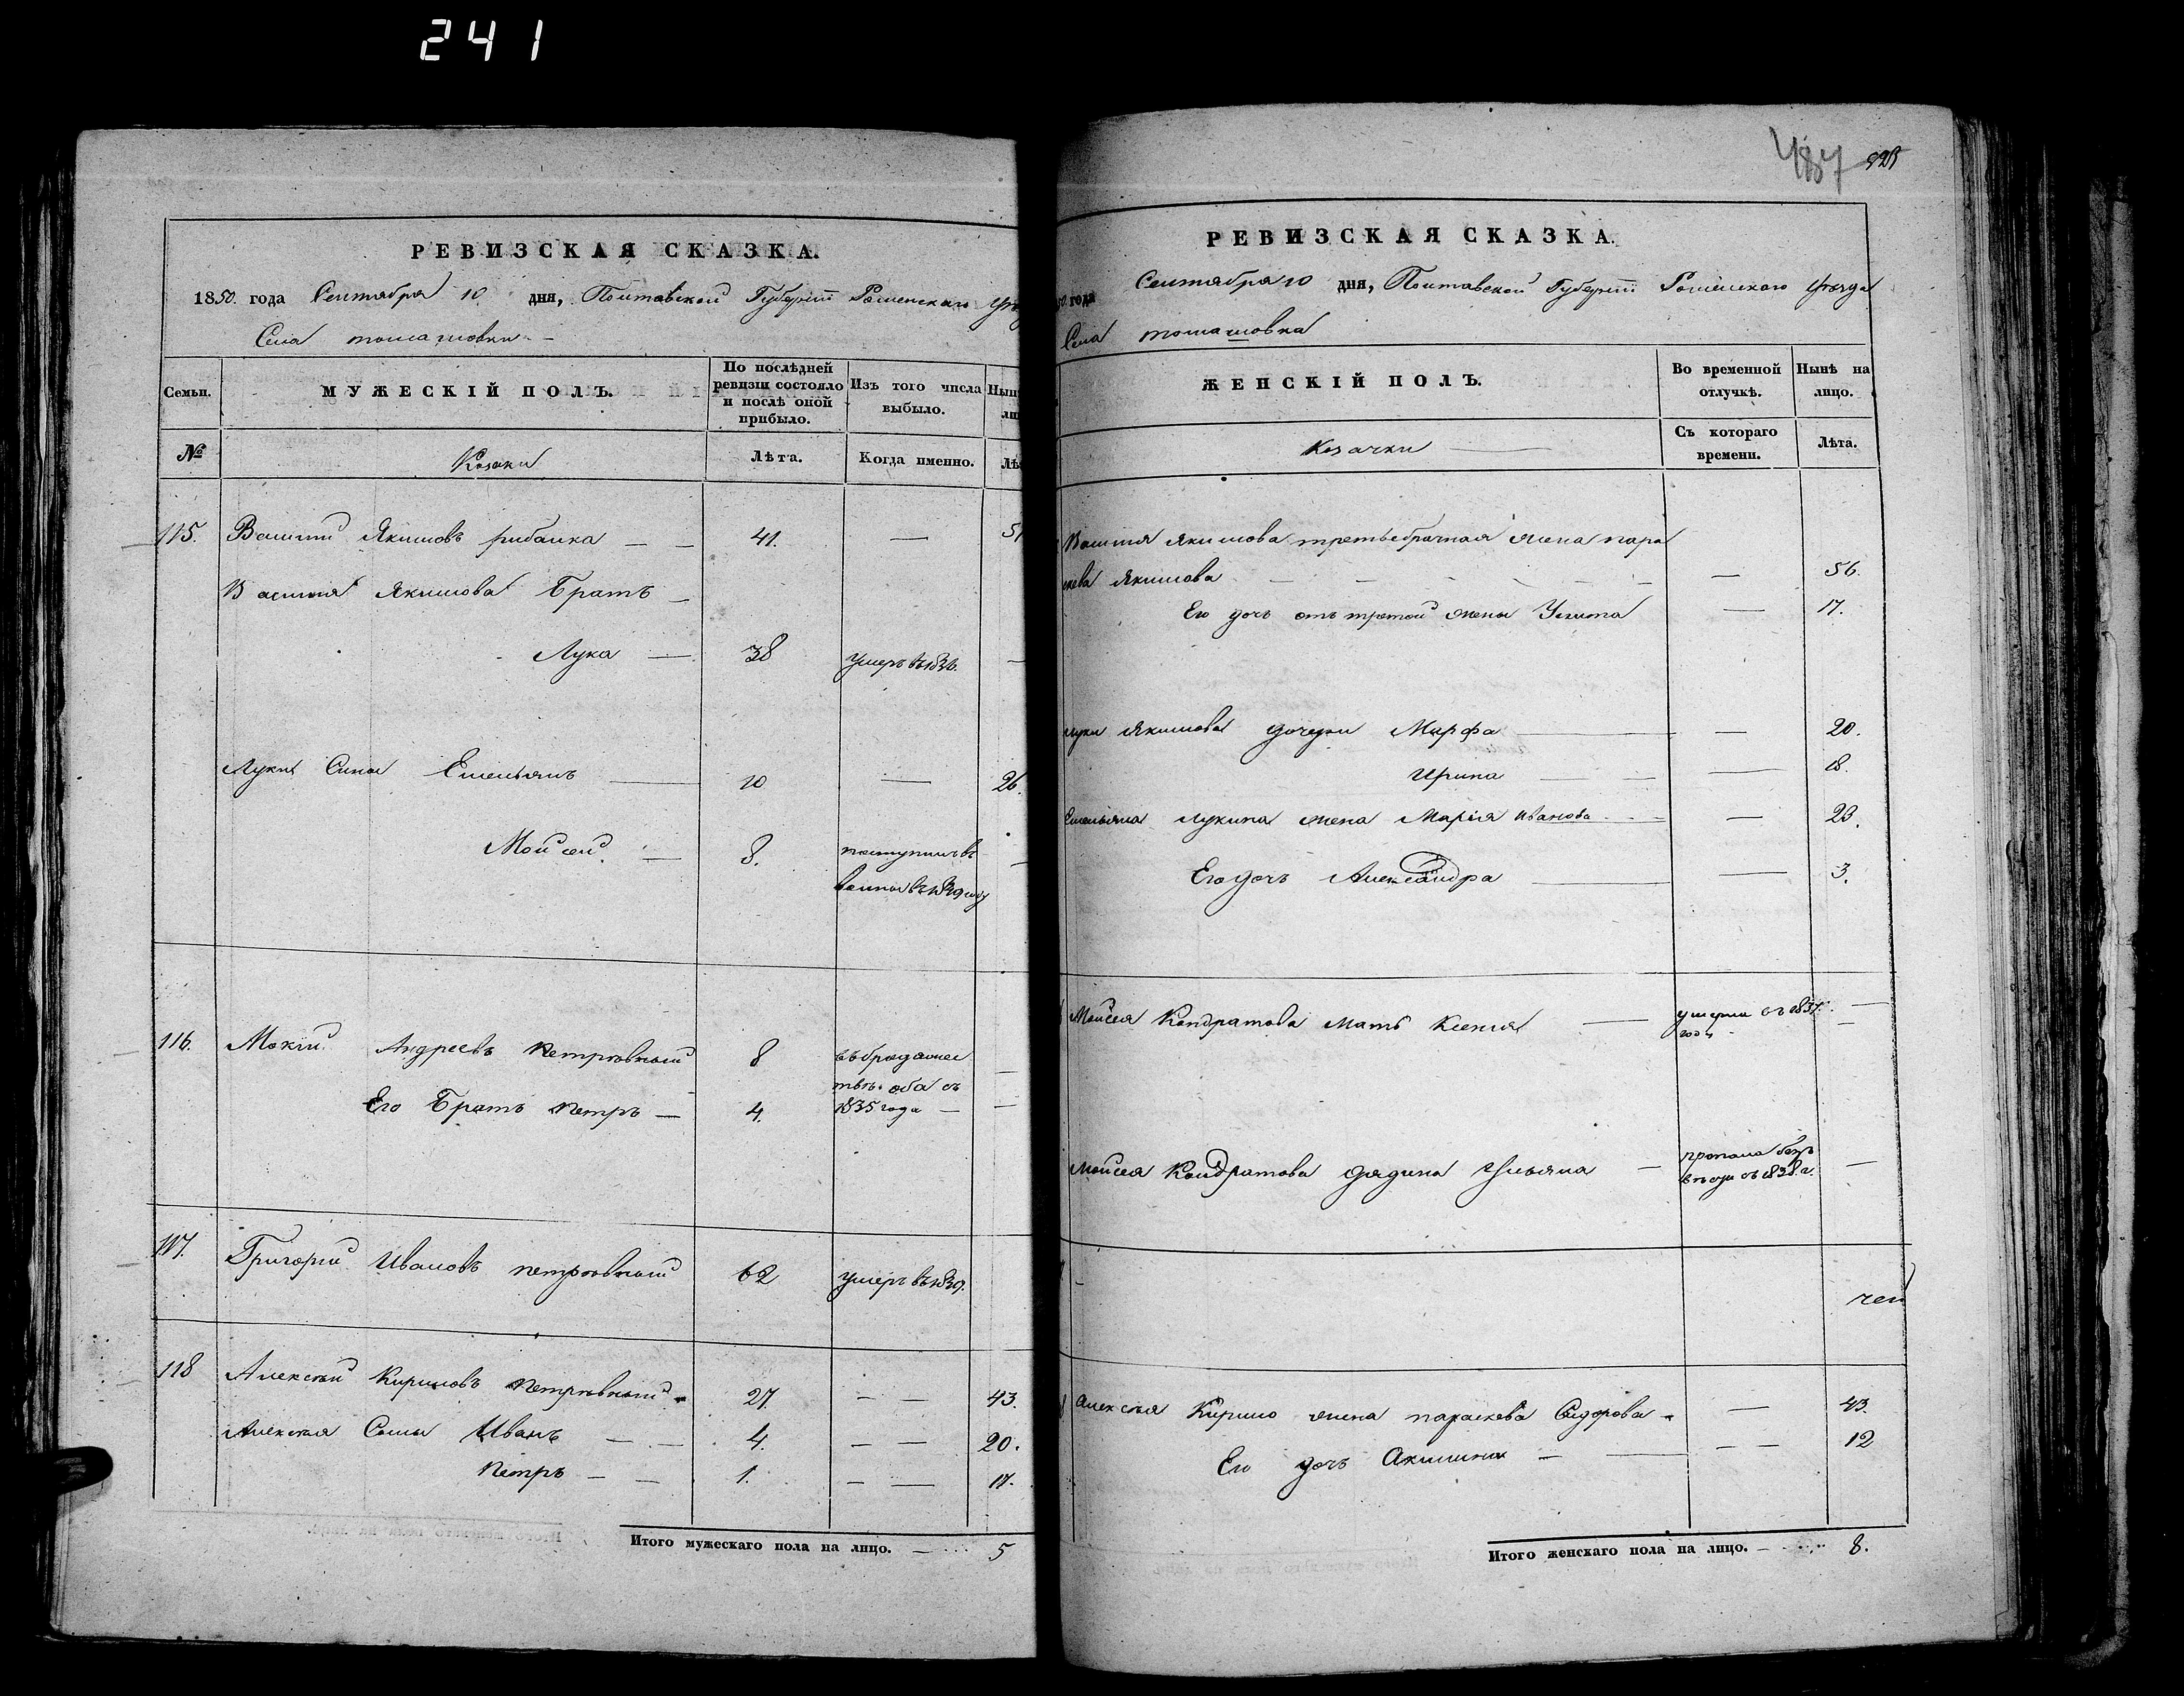 241
РЕВИЗСКАЯ СКАЗКА.
1850. года Сентября 10 дня, Полтавской Губерніи Роменскаго
Села томашовки
Семьи.
МУЖЕСКІЙ ПОЛЪ.
По послѣдней ревизіи состояло и послѣ оной прибыло.
Изъ того числа выбыло.
№
Козаки
Лѣта.
Когда именно.
115. Василій Якимовъ рибалка — — 41. — 51
Василія Якимова Братъ —
Лука — 38 умеръ въ 1836. —
Луки Сины Емельянъ — 10 — 26.
Мойсей — 8. поступилъ въ —
1839 году
116. Мокій Андреевъ Петровскій 8
Его Братъ Петръ — 4.
оба съ
1835 года — —
117. Григорій Ивановъ петровскій 62 умеръ въ 1839.
118 Алексѣй Кириловъ Петровскій 27. — — 43.
Алексѣя Сыны Иванъ — — 4. — — 20.
Петръ — — 1. — — 17.
Итого мужескаго пола на лицо. — 5
487
РЕВИЗСКАЯ СКАЗКА.
50. года Сентября 10 дня, Полтавской Губерніи Роменскаго уѣзда
Села томашовка
ЖЕНСКІЙ ПОЛЪ.
Во временной отлучкѣ.
Нынѣ на лицо.
Козачки —
Съ котораго времени.
Лѣта.
Василія Якимова третьебрачная жена пара
скева Якимова — — 56.
Его дочь отъ третой жены Улита — 17.
луки Якимова дочери Марфа — — 20.
Ирина — — 18.
Емельяна лукина жена Марія Иванова — — 23.
Его дочь Александра — — 3.
Моисея Кондратова мать Ксенія — умерла съ 1837. —
году
Моисея Кондратова дядина Ульяна — пропала безъ —
вѣсти съ 1838. г.
Алексѣя Кирило жена параскева Сидорова — 43.
Его дочь Акилина — — — 12
Итого женскаго пола на лицо. — 8.